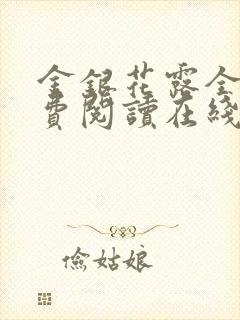 金銀花露全
費閱讀在綫
儉姑娘